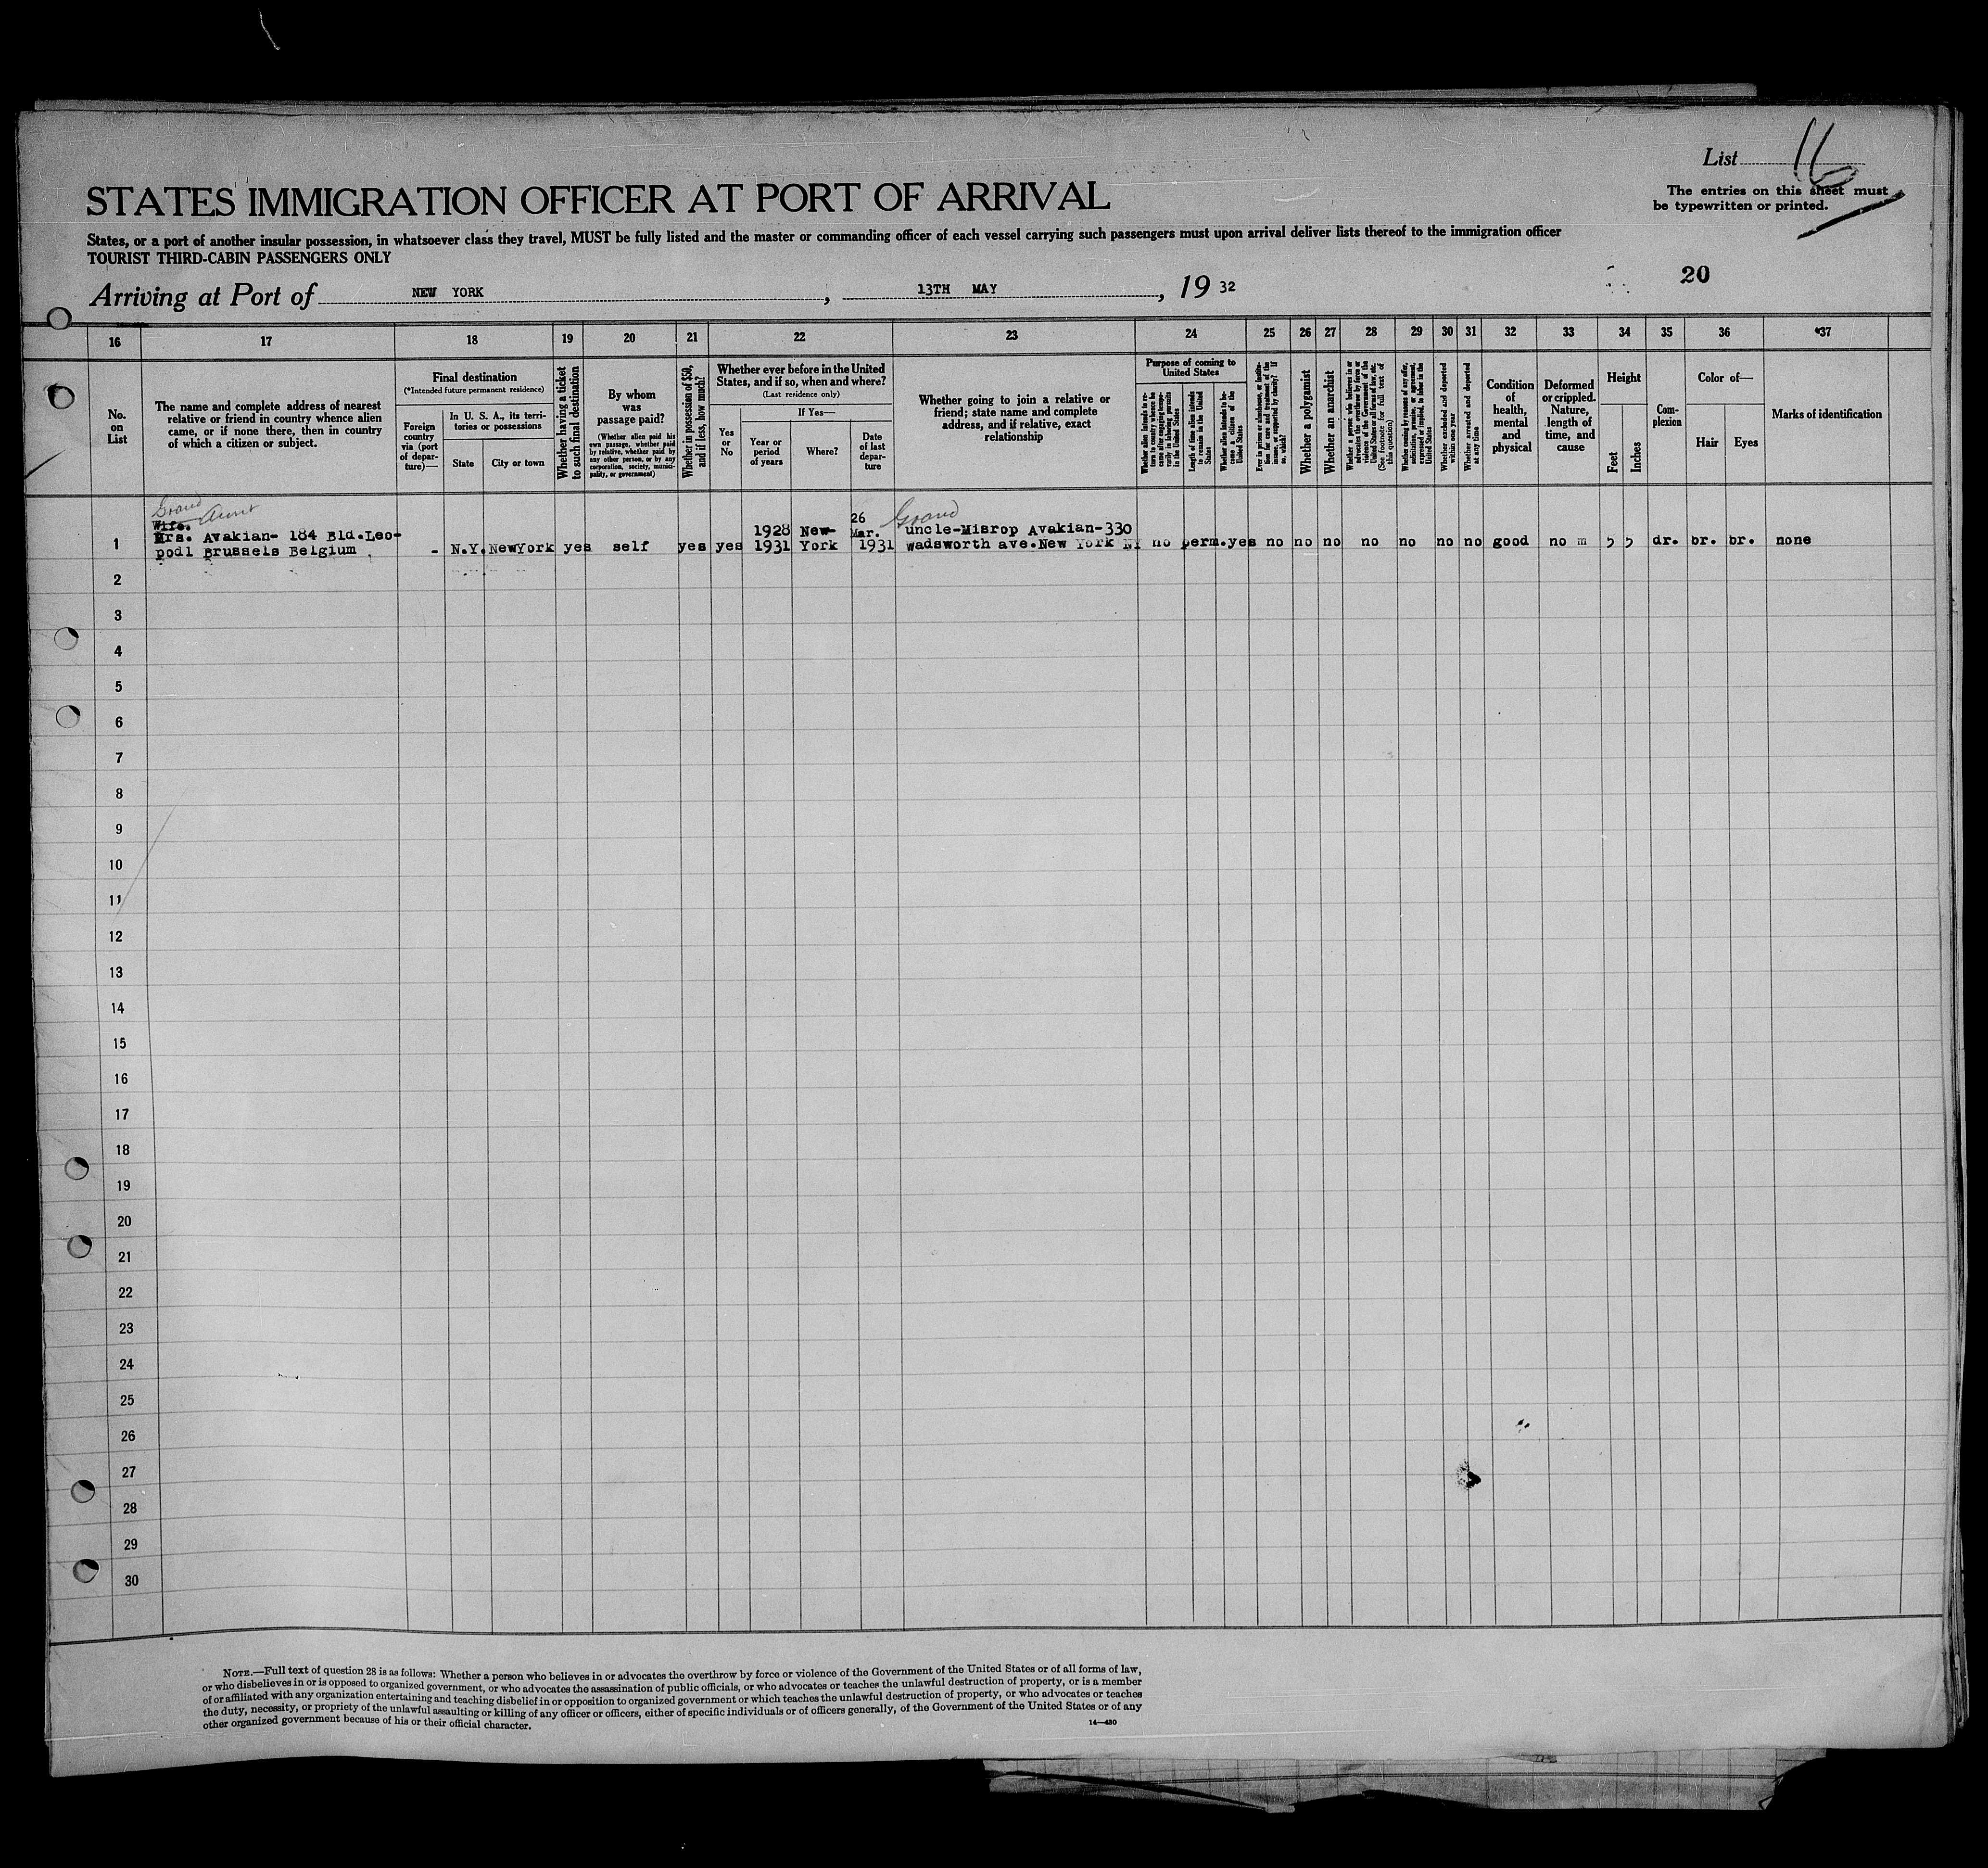 List 16
The entries on this sheet must
be typewritten or printed.
STATES IMMIGRATION OFFICER AT PORT OF ARRIVAL
States, or a port of another insular possession, in whatsoever class they travel, MUST be fully listed and the master or commanding officer of each vessel carrying such passengers must upon arrival deliver lists thereof to the immigration officer
TOURIST THIRD-CABIN PASSENGERS ONLY
Arriving at Port of NEW YORK, 13TH MAY, 1932
20
16 17 18 19 20 21 22 23 24 25 26 27 28 29 30 31 32 33 34 35 36 *37
No.
on
List
The name and complete address of nearest
relative or friend in country whence alien
came, or if none there, then in country
of which a citizen or subject.
Final destination
(*Intended future permanent residence)
Foreign
country
via (port
of depar-
ture)—
In U. S. A., its terri-
tories or possessions
State
City or town
Whether having a ticket
to such final destination
By whom
was
passage paid?
(Whether alien paid his
own passage, whether paid
by relative, whether paid by
any other person, or by any
corporation, society, munici-
pality, or government)
Whether in possession of $50,
and if less, how much?
Whether ever before in the United
States, and if so, when and where?
(Last residence only)
Yes
or
No
If Yes—
Year or
period
of years
Where?
Date
of last
depar-
ture
Whether going to join a relative or
friend; state name and complete
address, and if relative, exact
relationship
Purpose of coming to
United States
Whether alien intends to re-
turn to country whence he
came after engaging tempo-
rarily in laboring pursuits
in the United States
Length of time alien intends
to remain in the United
States
Whether alien intends to be-
come a citizen of the
United States
Ever in prison or almshouse, or institu-
tion for care and treatment of the
insane, or supported by charity? If
so, which?
Whether a polygamist
Whether an anarchist
Whether a person who believes in or
advocates the overthrow by force or
violence of the Government of the
United States or all forms of law, etc.
(See footnote for full text of
this question)
Whether coming by reasons of any offer,
solicitation, promise, or agreement,
expressed or implied, to labor in the
United States
Whether excluded and deported
within one year
Whether arrested and deported
at any time
Condition
of
health,
mental
and
physical
Deformed
or crippled.
Nature,
length of
time, and
cause
Height
Feet
Inches
Com-
plexion
Color of—
Hair
Eyes
Marks of identification
Grand
Aunt
Wife.
Mrs. Avakian- 184 Bld.Leo-
podl Brussels Belgium
1 - N.Y. NewYork yes self yes yes
1928 New-
1931 York
26
Mar.
1931
Grand
uncle-Misrop Avakian-330
wadsworth ave.New York NY
no perm. yes no no no no no no no good no m 5 5 dr. br. br. none
2
3
4
5
6
7
8
9
10
11
12
13
14
15
16
17
18
19
20
21
22
23
24
25
26
27
28
29
30
NOTE.—Full text of question 28 is as follows: Whether a person who believes in or advocates the overthrow by force or violence of the Government of the United States or of all forms of law,
or who disbelieves in or is opposed to organized government, or who advocates the assassination of public officials, or who advocates or teaches the unlawful destruction of property, or is a member
of or affiliated with any organization entertaining and teaching disbelief in or opposition to organized government or which teaches the unlawful destruction of property, or who advocates or teaches
the duty, necessity, or propriety of the unlawful assaulting or killing of any officer or officers, either of specific individuals or of officers generally, of the Government of the United States or of any
other organized government because of his or their official character.
14—430